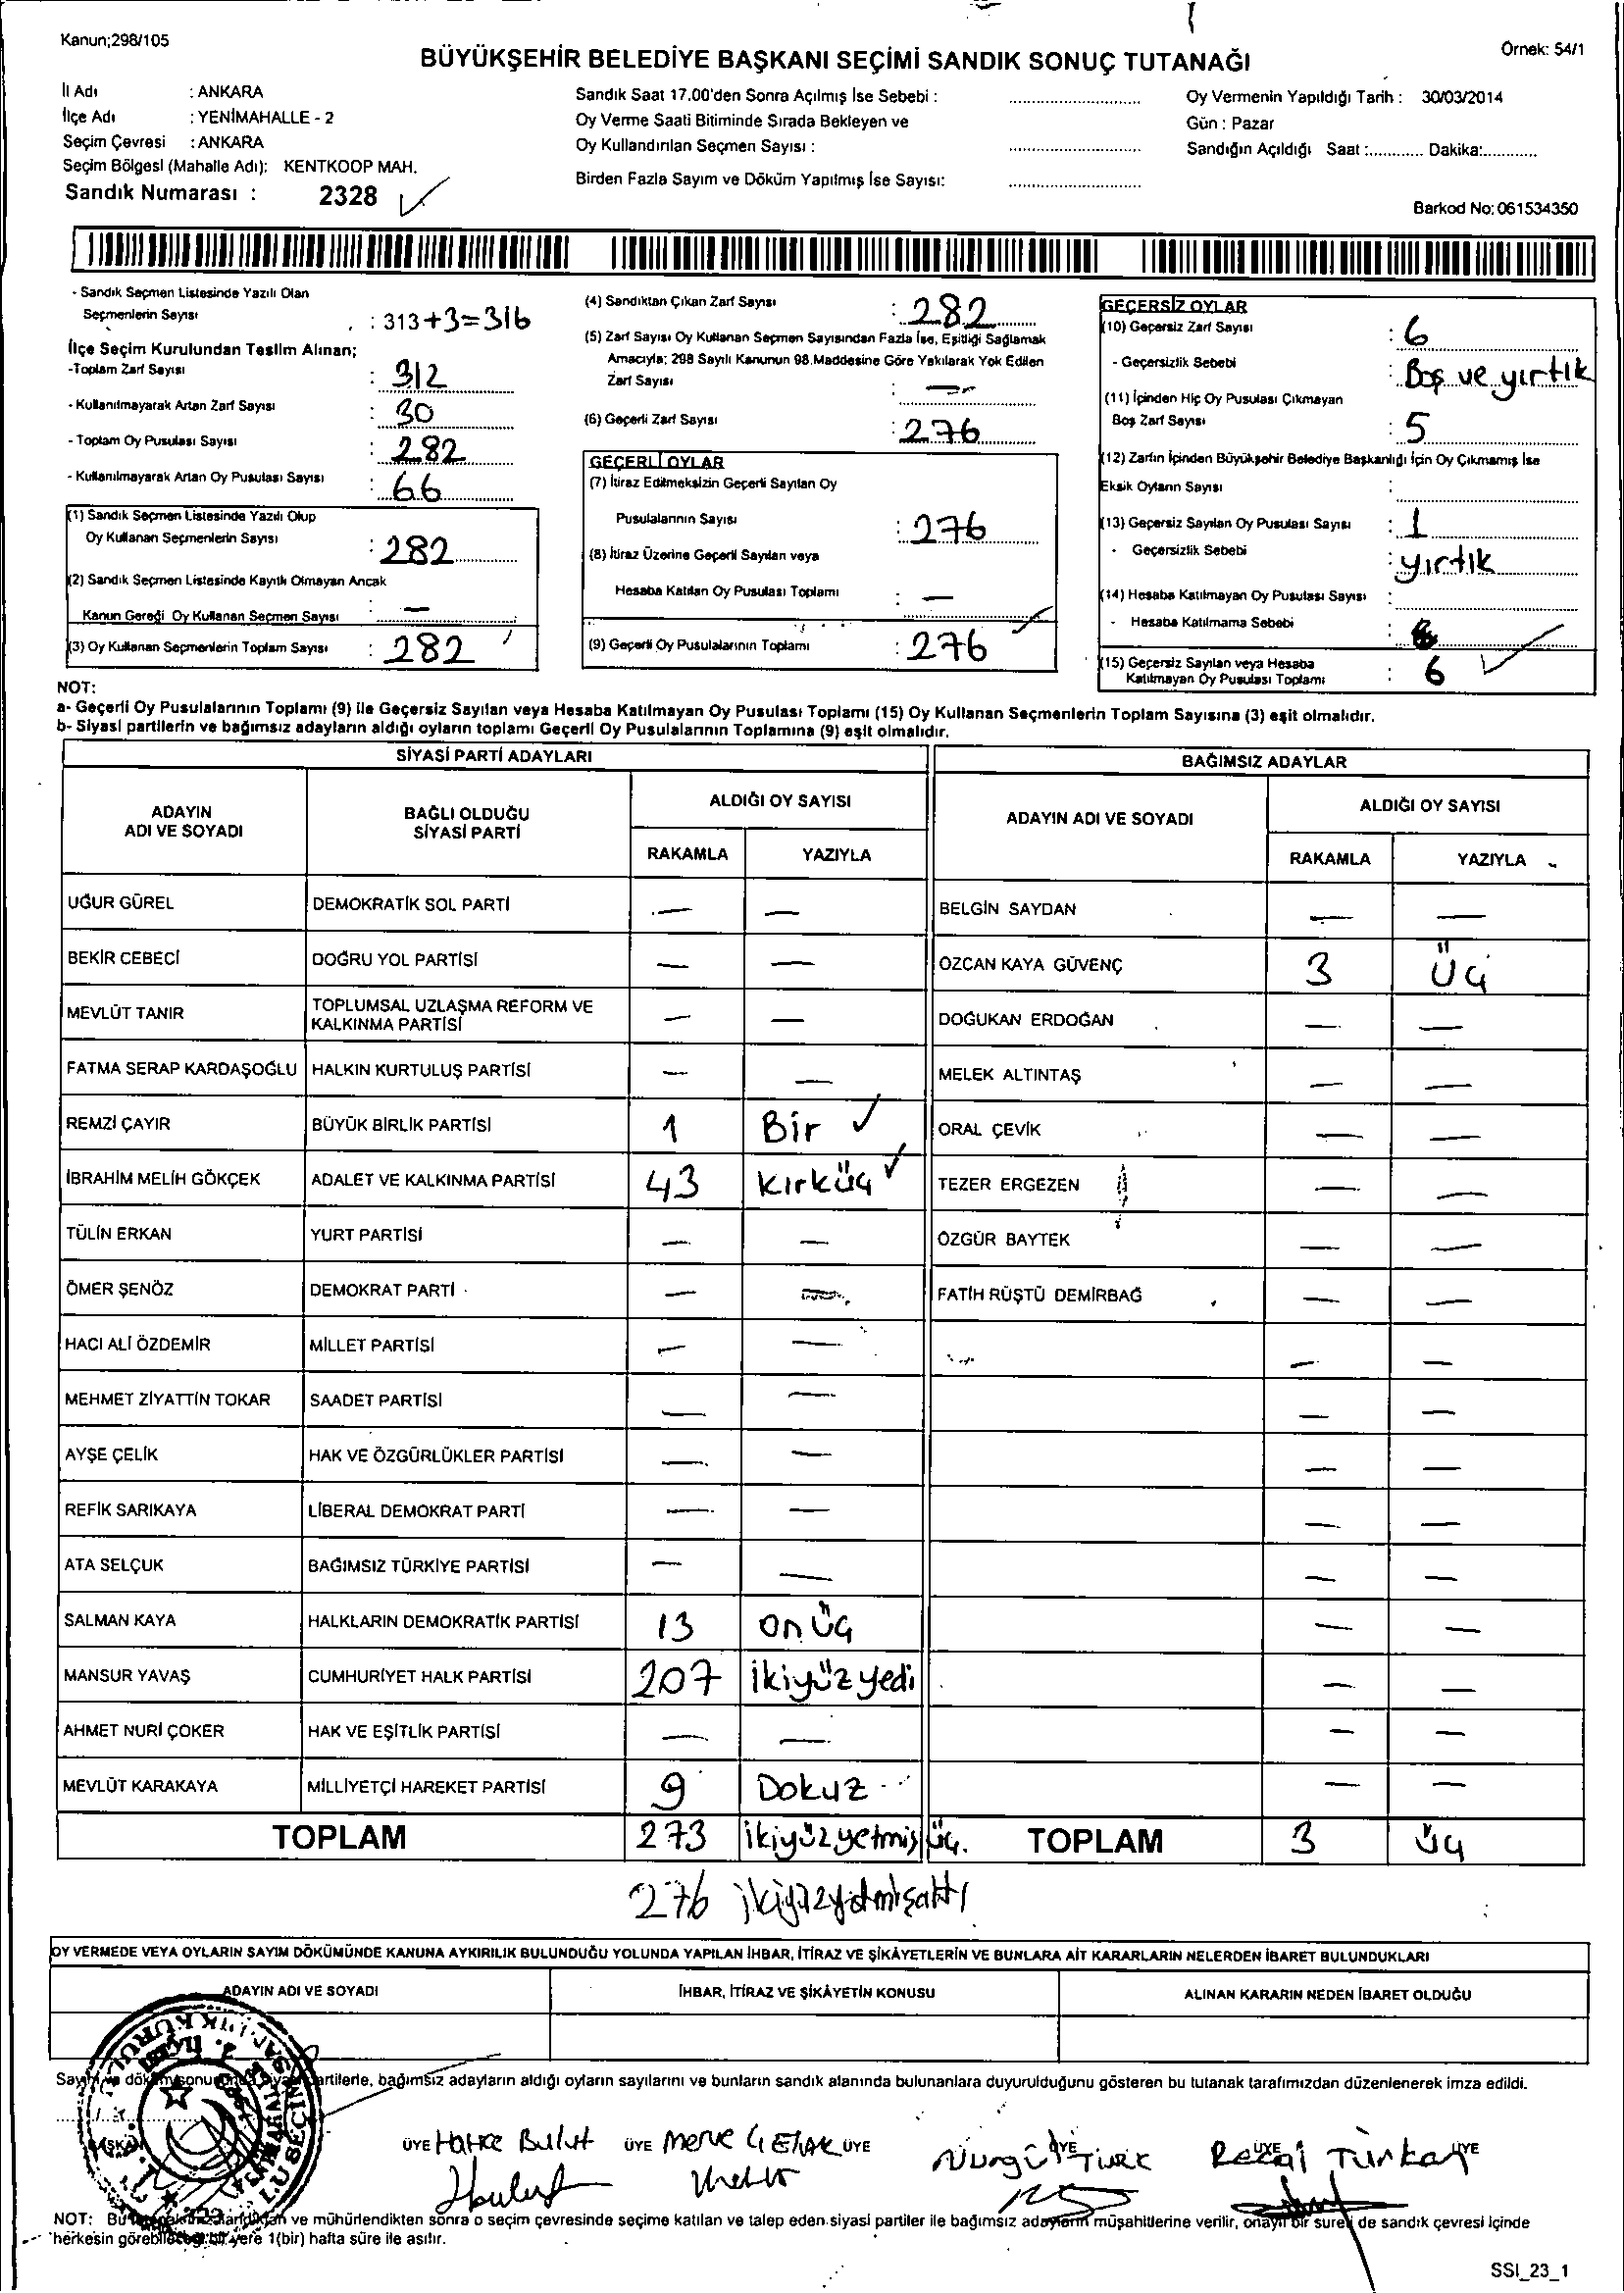 Kanun;298/105
Örnek: 54/1
BÜYÜKŞEHİR BELEDİYE BAŞKANI SEÇİMİ SANDIK SONUÇ TUTANAĞI
İl Adı : ANKARA
İlçe Adı : YENİMAHALLE - 2
Seçim Çevresi : ANKARA
Seçim Bölgesi (Mahalle Adı): KENTKOOP MAH.
Sandık Numarası : 2328
Sandık Saat 17.00'den Sonra Açılmış İse Sebebi :
Oy Verme Saati Bitiminde Sırada Bekleyen ve
Oy Kullandırılan Seçmen Sayısı :
Birden Fazla Sayım ve Döküm Yapılmış İse Sayısı:
Oy Vermenin Yapıldığı Tarih : 30/03/2014
Gün : Pazar
Sandığın Açıldığı Saat :............ Dakika:............
Barkod No: 061534350
- Sandık Seçmen Listesinde Yazılı Olan
Seçmenlerin Sayısı : 313+3=316
İlçe Seçim Kurulundan Teslim Alınan;
-Toplam Zarf Sayısı : 312
- Kullanılmayarak Artan Zarf Sayısı : 30
- Toplam Oy Pusulası Sayısı : 282
- Kullanılmayarak Artan Oy Pusulası Sayısı : 66
(1) Sandık Seçmen Listesinde Yazılı Olup
Oy Kullanan Seçmenlerin Sayısı : 282
(2) Sandık Seçmen Listesinde Kayıtlı Olmayan Ancak
Kanun Gereği Oy Kullanan Seçmen Sayısı : —
(3) Oy Kullanan Seçmenlerin Toplam Sayısı : 282
(4) Sandıktan Çıkan Zarf Sayısı : 282
(5) Zarf Sayısı Oy Kullanan Seçmen Sayısından Fazla İse, Eşitliği Sağlamak
Amacıyla; 298 Sayılı Kanunun 98.Maddesine Göre Yakılarak Yok Edilen
Zarf Sayısı : —
(6) Geçerli Zarf Sayısı : 276
GEÇERLİ OYLAR
(7) İtiraz Edilmeksizin Geçerli Sayılan Oy
Pusulalarının Sayısı : 276
(8) İtiraz Üzerine Geçerli Sayılan veya
Hesaba Katılan Oy Pusulası Toplamı : —
(9) Geçerli Oy Pusulalarının Toplamı : 276
GEÇERSİZ OYLAR
(10) Geçersiz Zarf Sayısı : 6
- Geçersizlik Sebebi : Boş ve yırtık
(11) İçinden Hiç Oy Pusulası Çıkmayan
Boş Zarf Sayısı : 5
(12) Zarfın İçinden Büyükşehir Belediye Başkanlığı İçin Oy Çıkmamış İse
Eksik Oyların Sayısı :
(13) Geçersiz Sayılan Oy Pusulası Sayısı : 1
- Geçersizlik Sebebi : yırtık
(14) Hesaba Katılmayan Oy Pusulası Sayısı :
- Hesaba Katılmama Sebebi :
(15) Geçersiz Sayılan veya Hesaba
Katılmayan Oy Pusulası Toplamı : 6
NOT:
a- Geçerli Oy Pusulalarının Toplamı (9) ile Geçersiz Sayılan veya Hesaba Katılmayan Oy Pusulası Toplamı (15) Oy Kullanan Seçmenlerin Toplam Sayısına (3) eşit olmalıdır.
b- Siyasi partilerin ve bağımsız adayların aldığı oyların toplamı Geçerli Oy Pusulalarının Toplamına (9) eşit olmalıdır.
SİYASİ PARTİ ADAYLARI
ADAYIN ADI VE SOYADI BAĞLI OLDUĞU SİYASİ PARTİ ALDIĞI OY SAYISI
RAKAMLA YAZIYLA
UĞUR GÜREL DEMOKRATİK SOL PARTİ — —
BEKİR CEBECİ DOĞRU YOL PARTİSİ — —
MEVLÜT TANIR TOPLUMSAL UZLAŞMA REFORM VE KALKINMA PARTİSİ — —
FATMA SERAP KARDAŞOĞLU HALKIN KURTULUŞ PARTİSİ — —
REMZİ ÇAYIR BÜYÜK BİRLİK PARTİSİ 1 Bir
İBRAHİM MELİH GÖKÇEK ADALET VE KALKINMA PARTİSİ 43 kırküç
TÜLİN ERKAN YURT PARTİSİ — —
ÖMER ŞENÖZ DEMOKRAT PARTİ — —
HACI ALİ ÖZDEMİR MİLLET PARTİSİ — —
MEHMET ZİYATTİN TOKAR SAADET PARTİSİ — —
AYŞE ÇELİK HAK VE ÖZGÜRLÜKLER PARTİSİ — —
REFİK SARIKAYA LİBERAL DEMOKRAT PARTİ — —
ATA SELÇUK BAĞIMSIZ TÜRKİYE PARTİSİ — —
SALMAN KAYA HALKLARIN DEMOKRATİK PARTİSİ 13 onüç
MANSUR YAVAŞ CUMHURİYET HALK PARTİSİ 207 ikiyüzyedi
AHMET NURİ ÇOKER HAK VE EŞİTLİK PARTİSİ — —
MEVLÜT KARAKAYA MİLLİYETÇİ HAREKET PARTİSİ 9 Dokuz
TOPLAM 273 ikiyüzyetmişüç.
BAĞIMSIZ ADAYLAR
ADAYIN ADI VE SOYADI ALDIĞI OY SAYISI
RAKAMLA YAZIYLA
BELGİN SAYDAN — —
ÖZCAN KAYA GÜVENÇ 3 Üç
DOĞUKAN ERDOĞAN — —
MELEK ALTINTAŞ — —
ORAL ÇEVİK — —
TEZER ERGEZEN — —
ÖZGÜR BAYTEK — —
FATİH RÜŞTÜ DEMİRBAĞ — —
TOPLAM 3 üç
276 ikiyüzyetmişaltı
OY VERMEDE VEYA OYLARIN SAYIM DÖKÜMÜNDE KANUNA AYKIRILIK BULUNDUĞU YOLUNDA YAPILAN İHBAR, İTİRAZ VE ŞİKÂYETLERİN VE BUNLARA AİT KARARLARIN NELERDEN İBARET BULUNDUKLARI
ADAYIN ADI VE SOYADI İHBAR, İTİRAZ VE ŞİKÂYETİN KONUSU ALINAN KARARIN NEDEN İBARET OLDUĞU
bağımsız adayların aldığı oyların sayılarını ve bunların sandık alanında bulunanlara duyurulduğunu gösteren bu tutanak tarafımızdan düzenlenerek imza edildi.
ÜYE Hatice Bulut ÜYE Merve ÜYE Nurgül Türk ÜYE ÜYE
NOT: ve mühürlendikten sonra o seçim çevresinde seçime katılan ve talep eden siyasi partiler ile bağımsız adayların müşahitlerine verilir, onaylı bir sureti de sandık çevresi içinde
herkesin görebileceği bir yere 1(bir) hafta süre ile asılır.
SSI_23_1